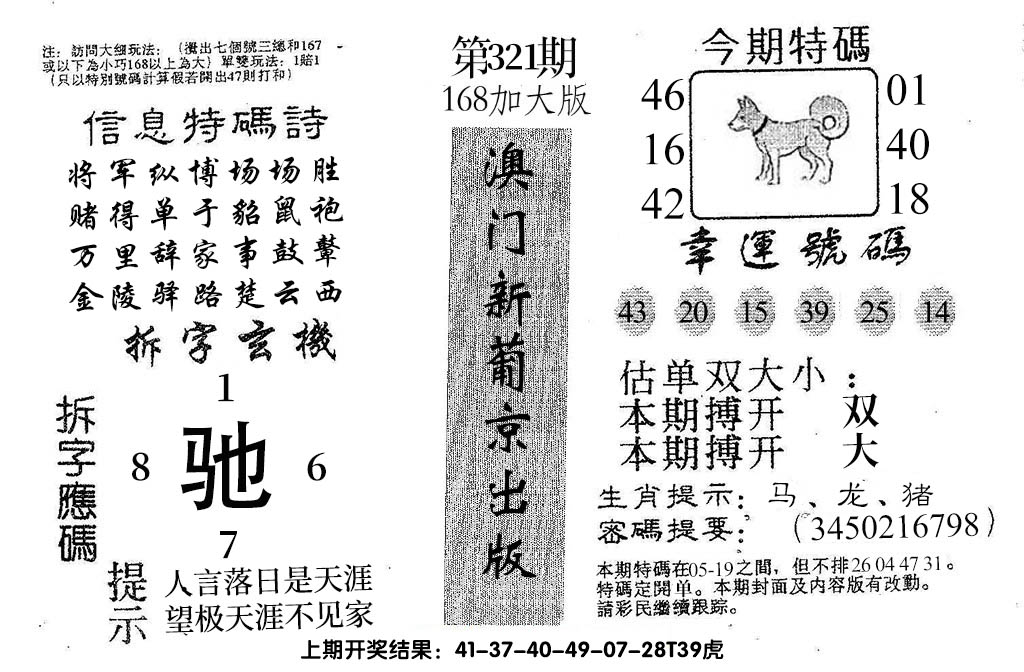 注：訪問大细玩法：（攪出七個號三總和167
或以下為小巧168以上為大）單雙玩法：1賠1
（只以特別號碼計算假若開出47則打和）
信息特碼詩
将军纵博场场胜
赌得单于貂鼠袍
万里辞家事鼓鼙
金陵驿路楚云西
拆字玄機
拆字應碼
1
8 驰 6
7
提示
人言落日是天涯
望极天涯不见家
第321期
168加大版
澳门新葡京出版
今期特碼
46 01
16 40
42 18
幸運號碼
43 20 15 39 25 14
估单双大小：
本期搏开 双
本期搏开 大
生肖提示：马、龙、猪
密碼提要：（3450216798）
本期特碼在05-19之間，但不排26 04 47 31。
特碼定開单。本期封面及内容版有改動。
請彩民繼續跟踪。
上期开奖结果：41-37-40-49-07-28T39虎